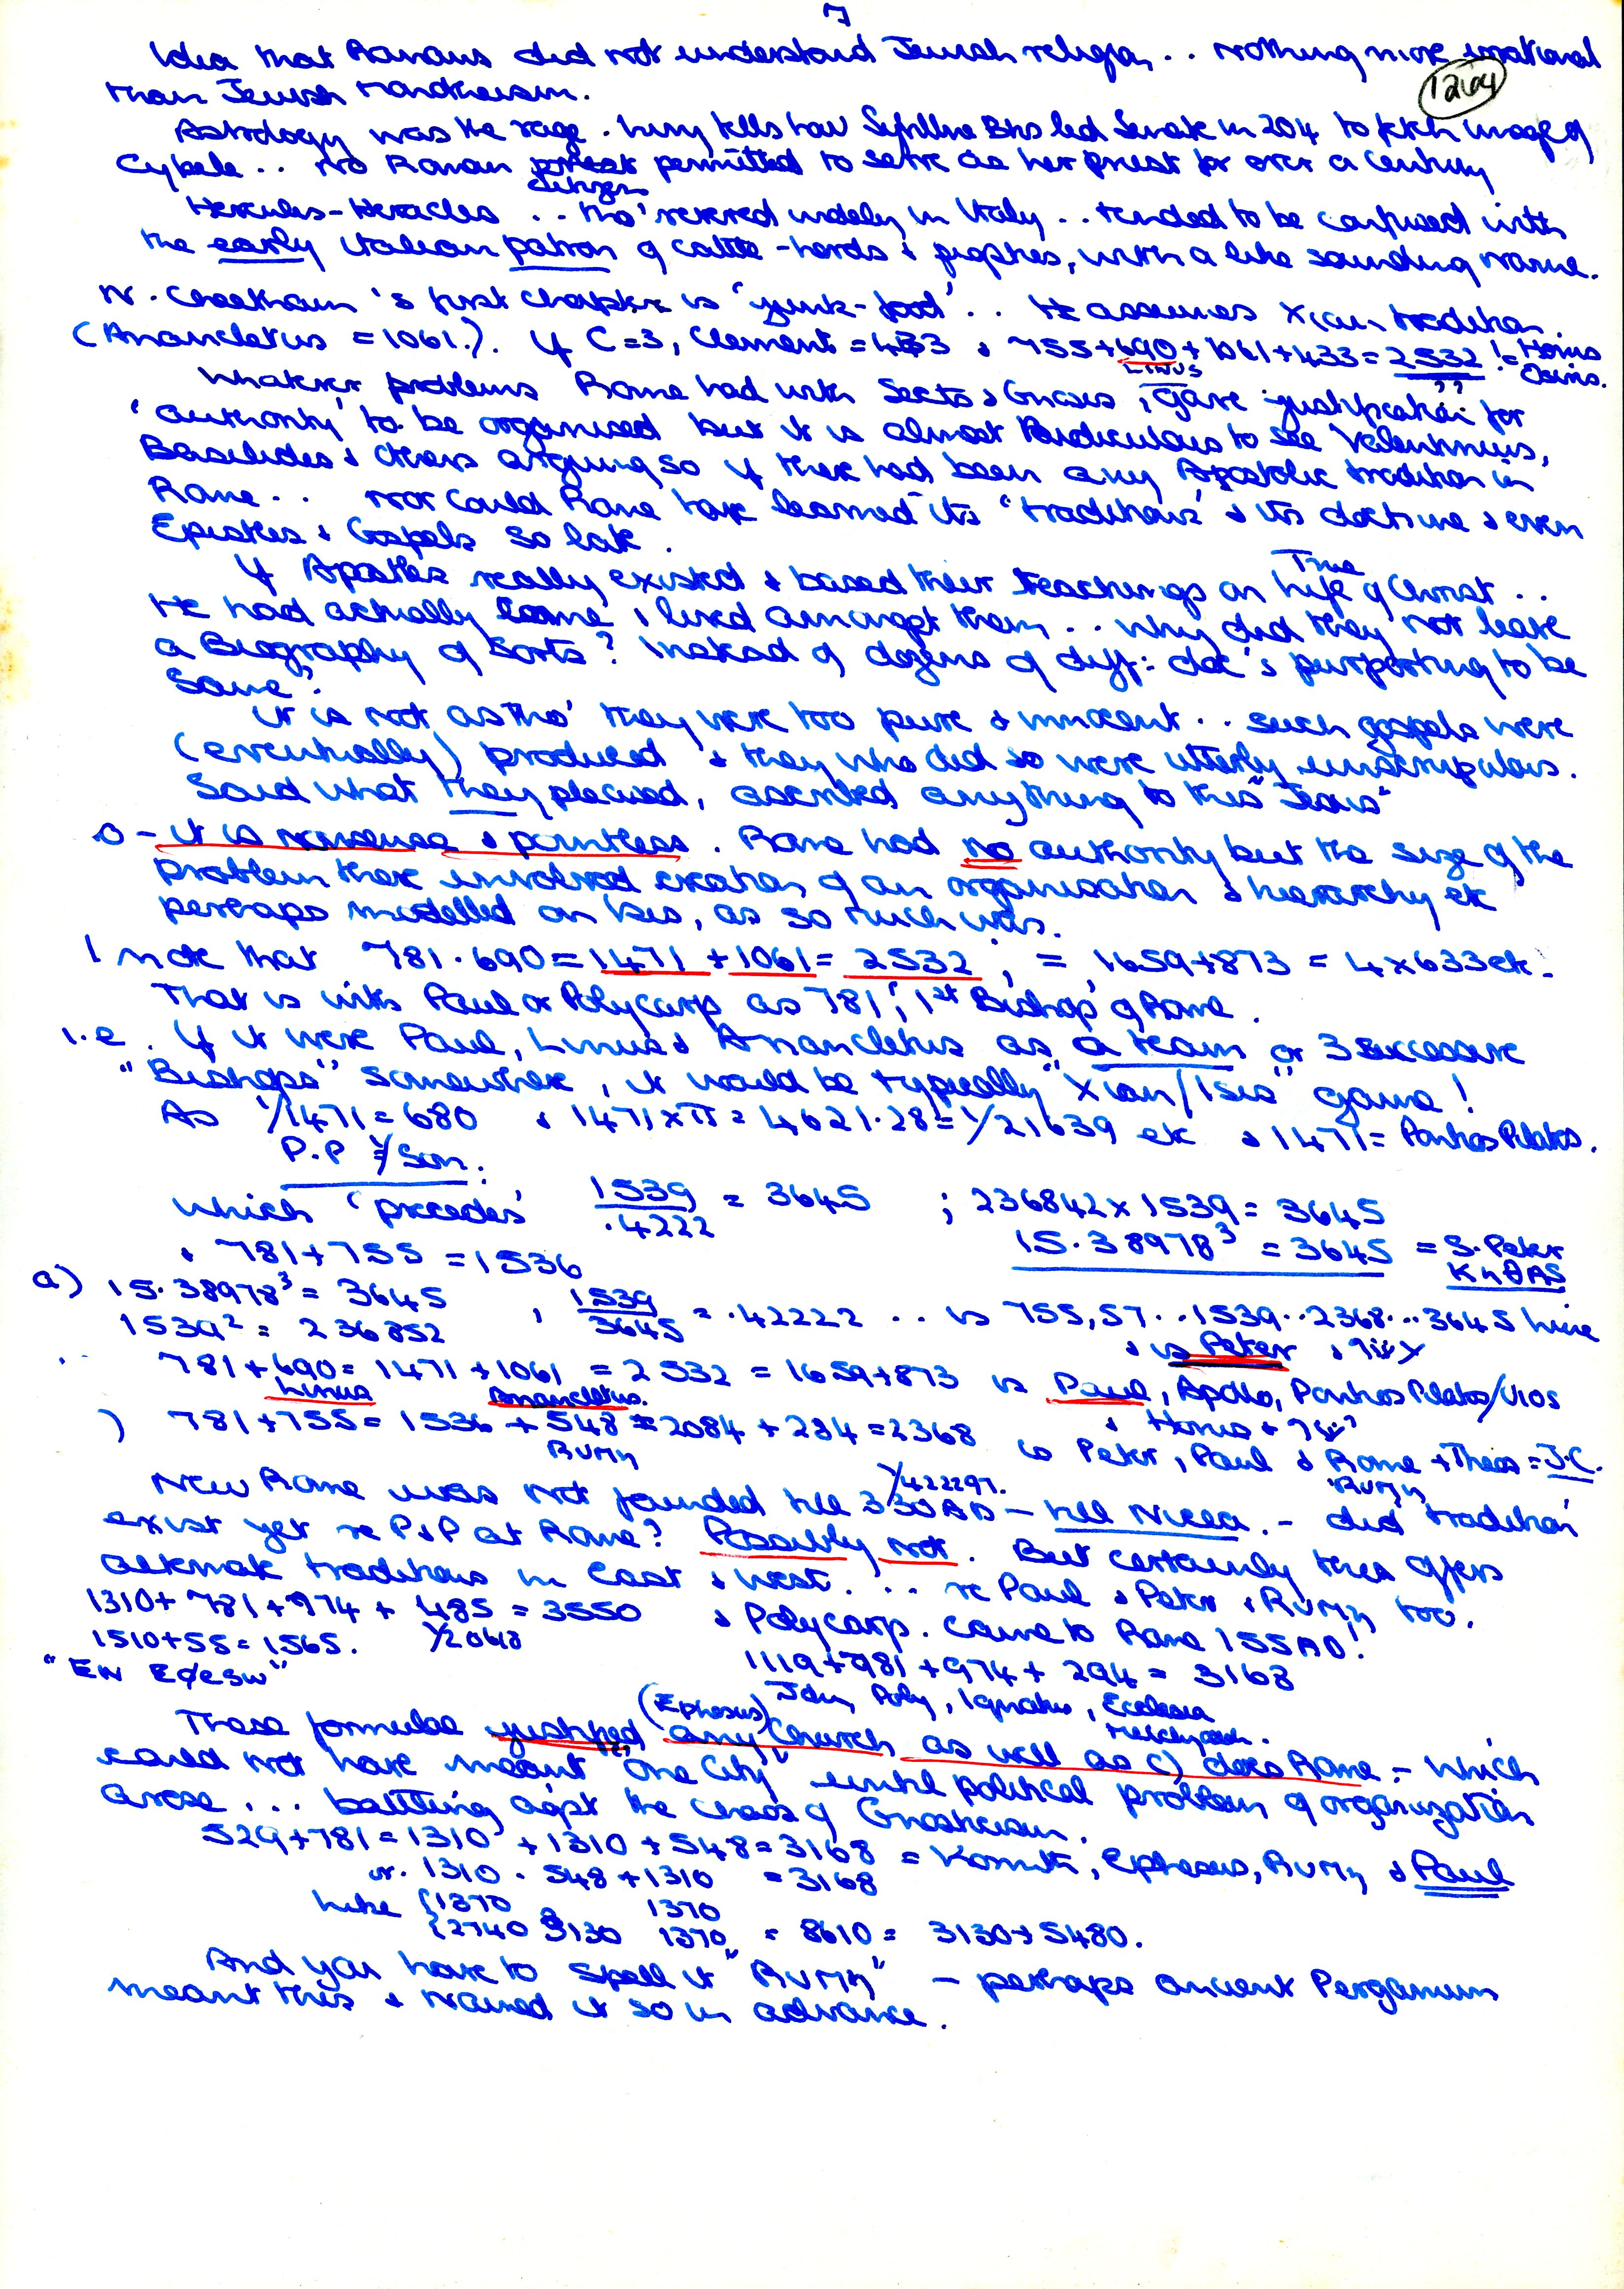 7
Idea that Romans did not understand Jewish religion .. nothing more irrational
than Jewish monotheism.
1264
Astrology was the rage. Livy tells how Sybilline Bks led Senate in 204 to fetch image of
Cybele .. No Roman citizen permitted to serve as her priest for over a century
Hercules-Heracles .. tho' revered widely in Italy .. tended to be confused with
the early Italian patron of cattle-herds & prophies, with a like sounding name.
N. Cheetham's first chapter is 'junk-food' .. He assumes Xian tradition.
(Anancletus = 1061.). If C=3, Clement = 433 & 755+690+1061+433=2532 != Horus
LINUS ?? Osiris.
Whatever problems Rome had with Sects & Gnosis, gave justification for
'authority' to be organised but it is almost Ridiculous to see Valentinus,
Basilides & others arguing so if there had been any Apostolic tradition in
Rome .. Nor could Rome have learned its 'traditions' & its doctrine & even
Epistles & Gospels so late.
If Apostles really existed & based their teachings on True Life of Christ ..
He had actually come & lived amongst them .. why did they not leave
a Biography of Sorts? Instead of dozens of diff: doc's purporting to be
Same?
It is not as tho' they were too pure & innocent .. such gospels were
(eventually) produced & they who did so were utterly unscrupulous.
Said what they pleased, ascribed anything to this "Jesus"
o - it is nonsense & pointless. Rome had no authority but the size of the
problem there involved creation of an organisation & hierarchy etc
perhaps modelled on Isis, as so much was.
I note that 781.690 = 1471 + 1061 = 2532; = 1659+873 = 4x633 etc.
That is with Paul or Polycarp as 781, '1st Bishop' of Rome.
i.e. If it were Paul, Linus & Anancletus as a team or 3 successive
"Bishops" somewhere, it would be typically "Xian/Isis" game!
As 1/1471 = 680 & 1471 x π = 4621.28 = 1/21639 etc & 1471 = Pontios Pilatos.
P.P = 1/Son.
which 'precedes' 1539/.4222 = 3645 ; 236842 x 1539 = 3645
& 781+755 = 1536 15.38978³ = 3645 = S. Peter
KηθAS
a) 15.38978³ = 3645 , 1539/3645 = .42222 .. is 755,57..1539..2368...3645 here
1539² = 236852 & is Peter &
781+690 = 1471 + 1061 = 2532 = 1659+873 is Paul, Apollo, Pontios Pilatos/Uios
Linus Anancletus. & Horus +
) 781+755 = 1536 + 548 = 2084 + 284 = 2368 is Peter, Paul & Rome + Theos = J.C.
RUMη RUMη
1/422297.
New Rome was not founded till 330AD - till Nicea. - did 'tradition'
exist yet re P&P at Rome? Possibly not. But certainly this offers
alternate traditions in East & West. ... re Paul & Peter & RUMη too.
1310+781+974+485 = 3550 & Polycarp. Came to Rome 155AD!
1510+55 = 1565. 1/2048
"EN EφESW" 1119+781+974+294 = 3168
John, Poly, Ignatius, Ecclesia
Melchizedek.
These formulae justified any (Ephesus) Church as well as c) does Rome - Which
could not have meant 'One City' until political problem of organization
arose ... battling agst the chaos of Gnosticism.
529+781 = 1310 + 1310 + 548 = 3168 = Korinth, Ephesus, RUMη & Paul
or. 1310.548+1310 = 3168
like {1370 1370
{2740 3130 1370 = 8610 = 3130+5480.
And you have to spell it "RUMη" - perhaps ancient Pergamum
meant this & named it so in advance.